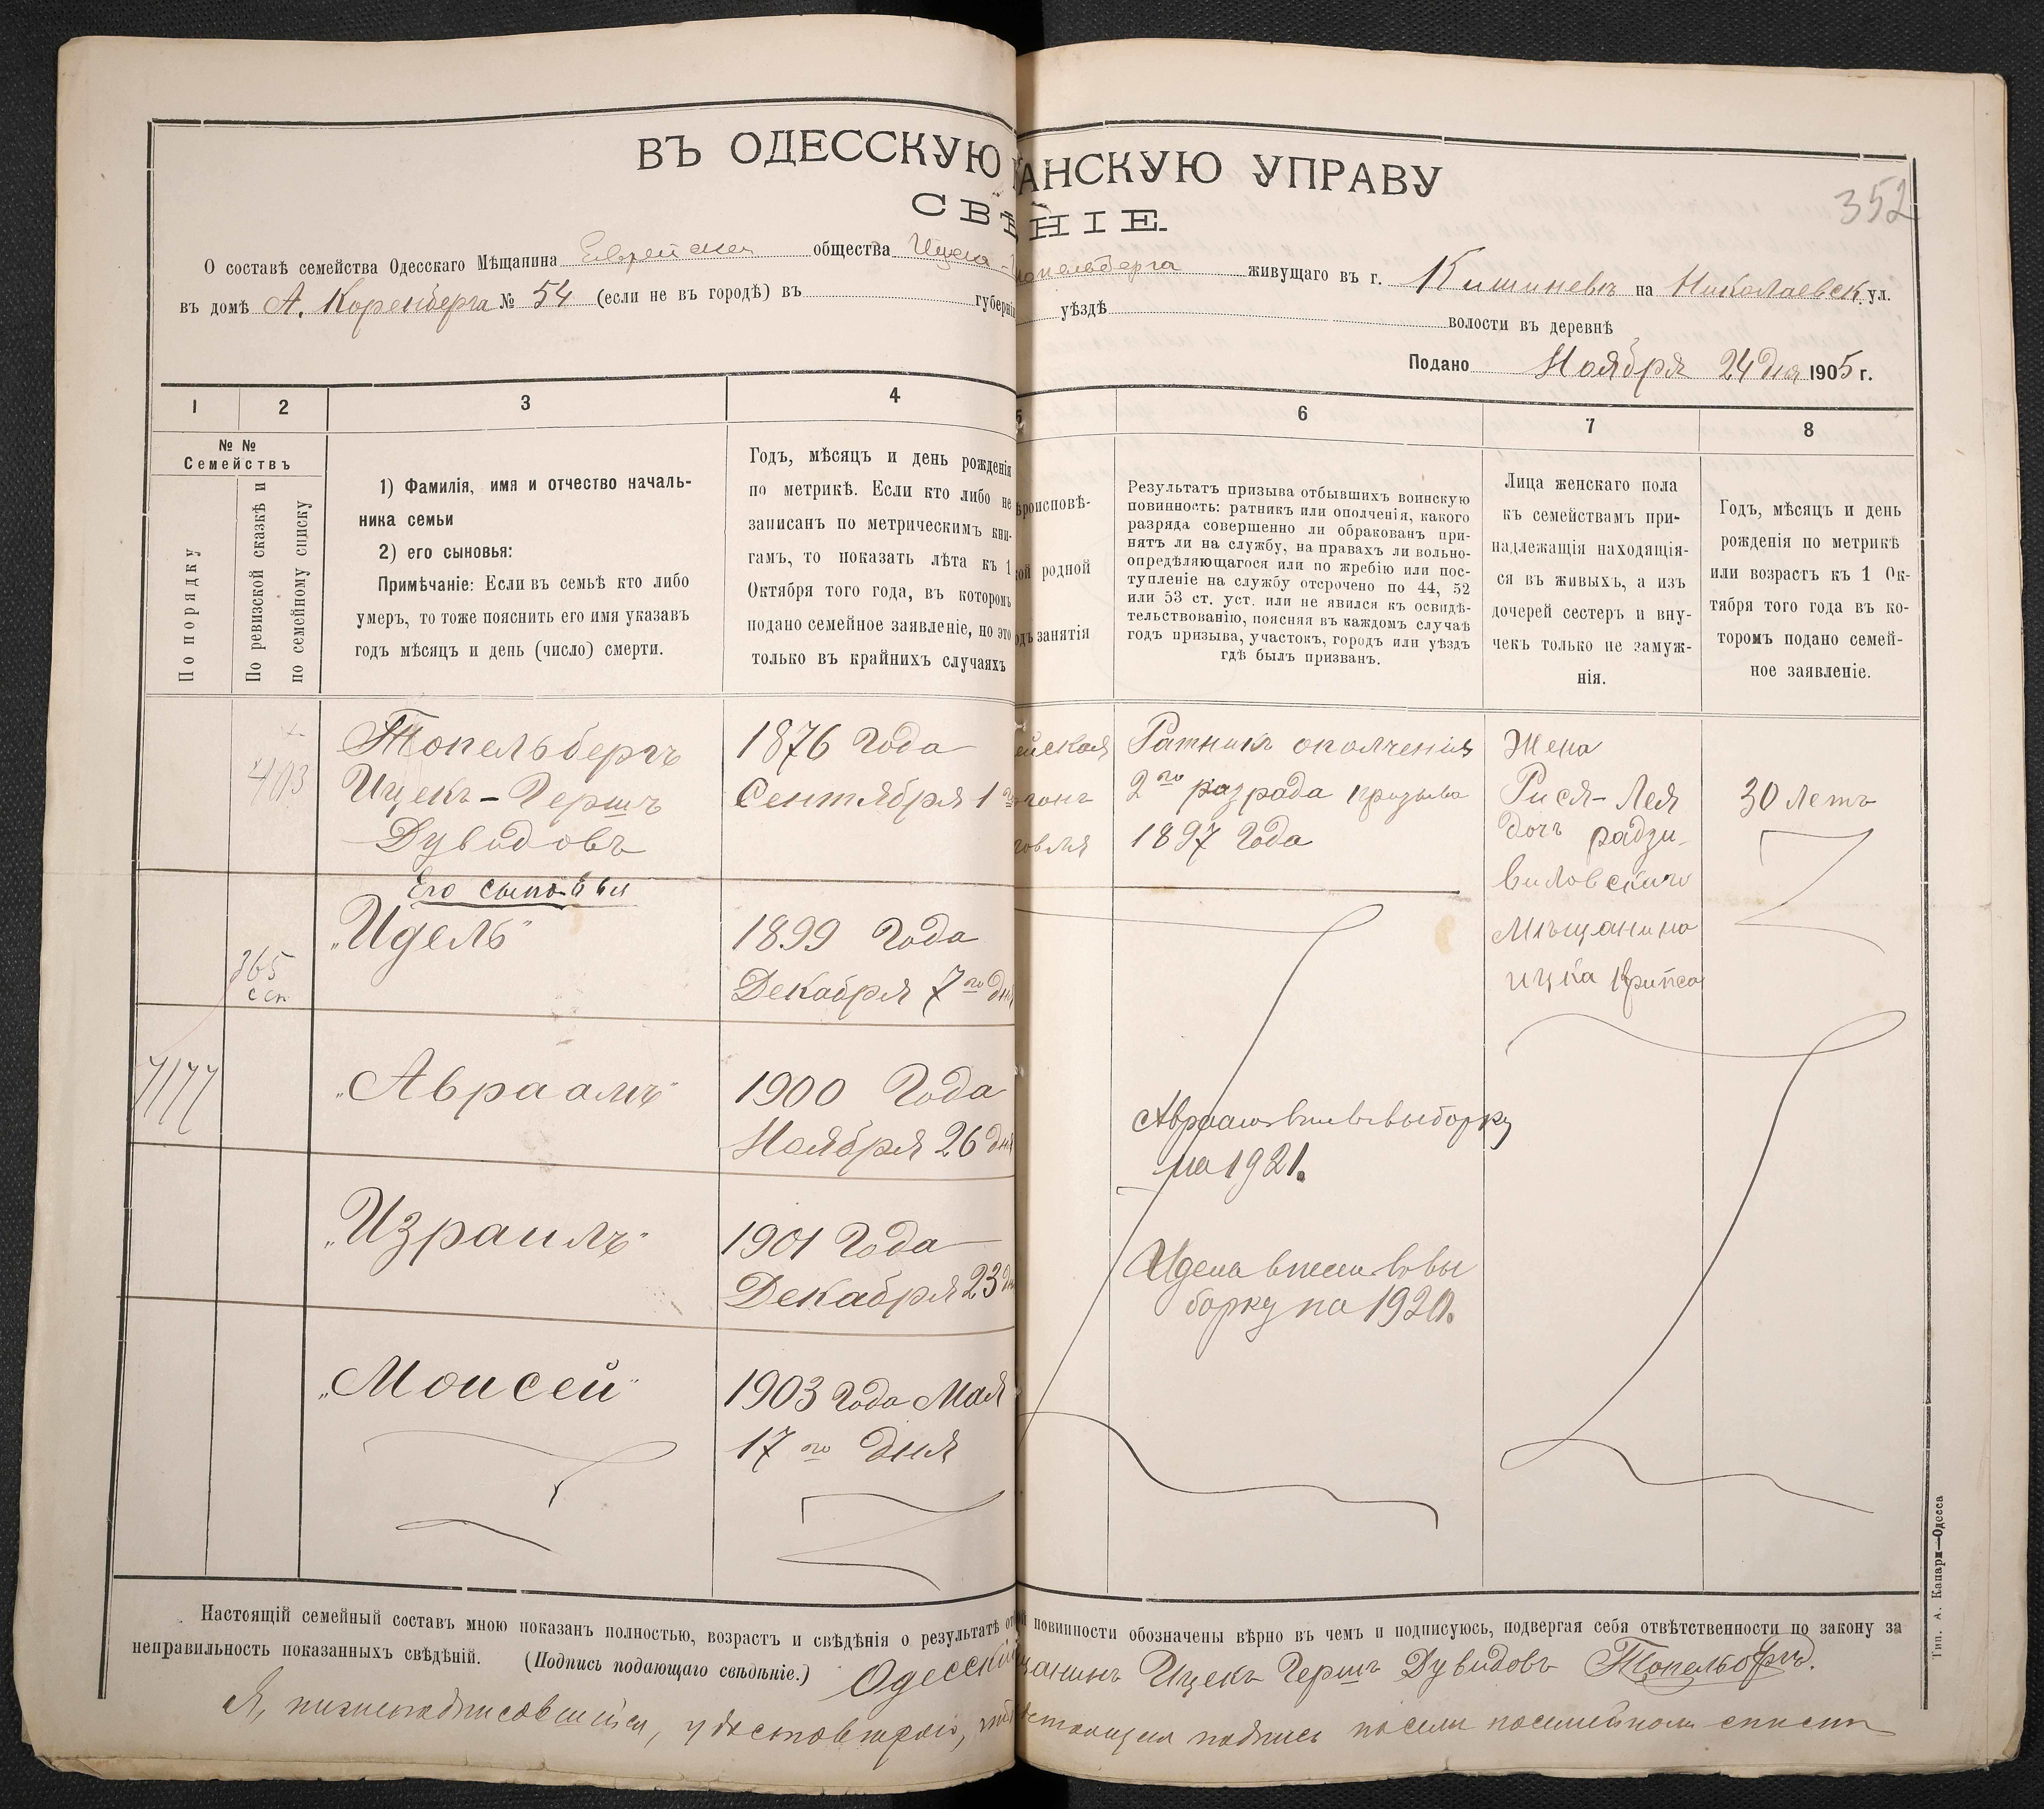 ВЪ ОДЕССКУЮ АНСКУЮ УПРАВУ
352
СВѢ НІЕ.
О составѣ семейства Одесскаго Мѣщанина общества Ицека - опельберга живущаго въ г. Кишиневѣ на Николаевск. ул.
въ домѣ А. Коренберга № 54 (если не въ городѣ) въ губерні уѣздѣ волости въ деревнѣ
Подано Ноября 24 дня 1905 г.
1 2 3 4 5 6 7 8
№ №
Семействъ
По порядку
По ревизской сказкѣ и
по семейному списку
1) Фамилія, имя и отчество началь-
ника семьи
2) его сыновья:
Примѣчаніе: Если въ семьѣ кто либо
умеръ, то тоже пояснить его имя указавъ
годъ мѣсяцъ и день (число) смерти.
Годъ, мѣсяцъ и день рожденія
по метрикѣ. Если кто либо не
записанъ по метрическимъ кни-
гамъ, то показать лѣта къ 1
Октября того года, въ которомъ
подано семейное заявленіе, но это
только въ крайнихъ случаяхъ
роисповѣ-
ой родной
одъ занятія
Результатъ призыва отбывшихъ воинскую
повинность: ратникъ или ополченія, какого
разряда совершенно ли обракованъ при-
нятъ ли на службу, на правахъ ли вольно-
опредѣляющагося или по жребію или пос-
тупленіе на службу отсрочено по 44, 52
или 53 ст. уст. или не явился къ освидѣ-
тельствованію, поясняя въ каждомъ случаѣ
годъ призыва, участокъ, городъ или уѣздъ
гдѣ былъ призванъ.
Лица женскаго пола
къ семействамъ при-
надлежащія находящія-
ся въ живыхъ, а изъ
дочерей сестеръ и вну-
чекъ только не замуж-
нія.
Годъ, мѣсяцъ и день
рожденія по метрикѣ
или возрастъ къ 1 Ок-
тября того года въ ко-
торомъ подано семей-
ное заявленіе.
403
Топельбергъ
Ицекъ - Гершъ
Дувидовъ
1876 Года
Сентября 1 го
ейская
говля
Ратникъ ополченія
2го разряда призыва
1897 Года
Жена
Рися - Лея
дочь радзи-
виловскаго
мѣщанина
ицка
30 Летъ
Его сыновьи
365
„Идель"
1899 Года
Декабря 7го дня
7177
„Авраамъ"
1900 Года
Ноября 26 дня
на 1921.
„Израиль"
1901 Года
Декабря 23 дн
внесен въ вы
борку на 1920.
„Моисей"
1903 Года Мая
17го дня
Настоящій семейный составъ мною показанъ полностью, возрастъ и свѣдѣнія о результатѣ от й повинности обозначены вѣрно въ чемъ и подписуюсь, подвергая себя отвѣтственности по закону за
неправильность показанныхъ свѣдѣній. (Подпись подающаго свѣдѣніе.) Одесскій щанинъ Ицекъ Гершъ Дувидовъ Топельбергъ.
Я, нижеподписавшійся, удостовѣряю, стоящая подпись
Тип. А. Капари—Одесса